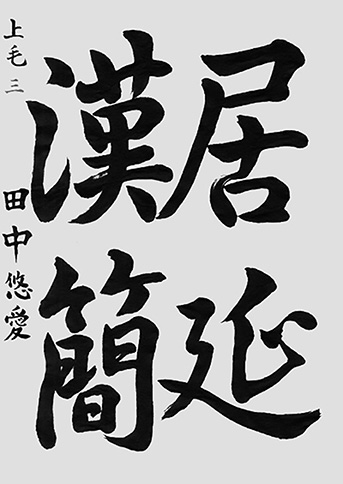 居延
漢簡
上毛三 田中悠愛